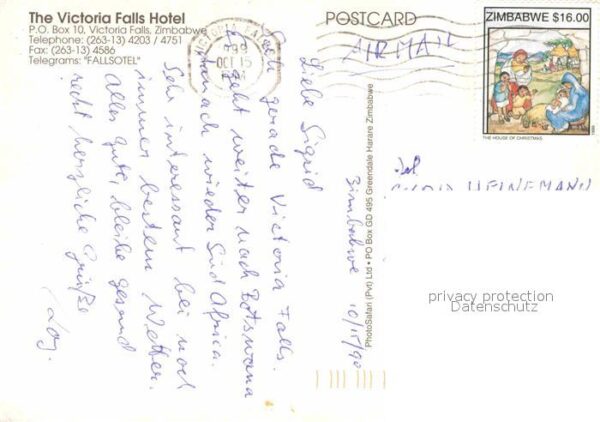 The Victoria Falls Hotel
P.O. Box 10, Victoria Falls, Zimbabwe
Telephone: (263-13) 4203 / 4751
Fax: (263-13) 4586
Telegrams: "FALLSOTEL"
POSTCARD
AIRMAIL
ZIMBABWE $16.00
THE HOUSE OF CHRISTMAS
VICTORIA FALLS
OCT 15
Zimbabwe
Liebe Sigrid
gerade Victoria Falls.
geht weiter nach Botswana
danach wieder Süd Afrika.
Sehr interessant bei noch
immer bestem Wetter.
alles gute, bleibe gesund
recht herzliche Grüße
PhotoSafari (Pvt) Ltd • PO Box GD 495 Greendale Harare Zimbabwe
HEINEMANN
privacy protection
Datenschutz